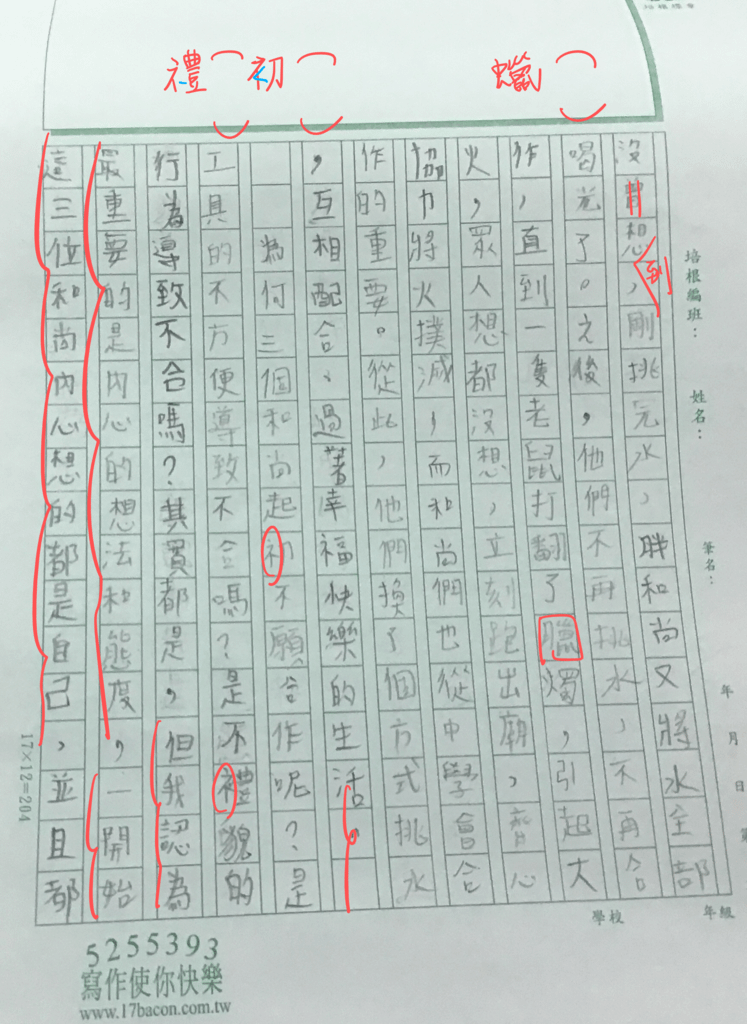 蠟
初
禮
培根編班：
姓名：
筆名：
年 月 日 第
學校 年級
沒曾想，剛挑完水，胖和尚又將水全部
到
喝光了。之後，他們不再挑水，不再合
作，直到一隻老鼠打翻了臘燭，引起大
火，眾人想都沒想，立刻跑出廟，齊心
協力將火撲滅，而和尚們也從中學會合
作的重要。從此，他們換了個方式挑水
，互相配合、過著幸福快樂的生活。
為何三個和尚起初不願合作呢？是
工具的不方便導致不合嗎？是不禮貌的
行為導致不合嗎？其實都是，但我認為
最重要的是內心的想法和態度，一開始
這三位和尚內心想的都是自己，並且都
17×12=204
5255393
寫作使你快樂
www.17bacon.com.tw